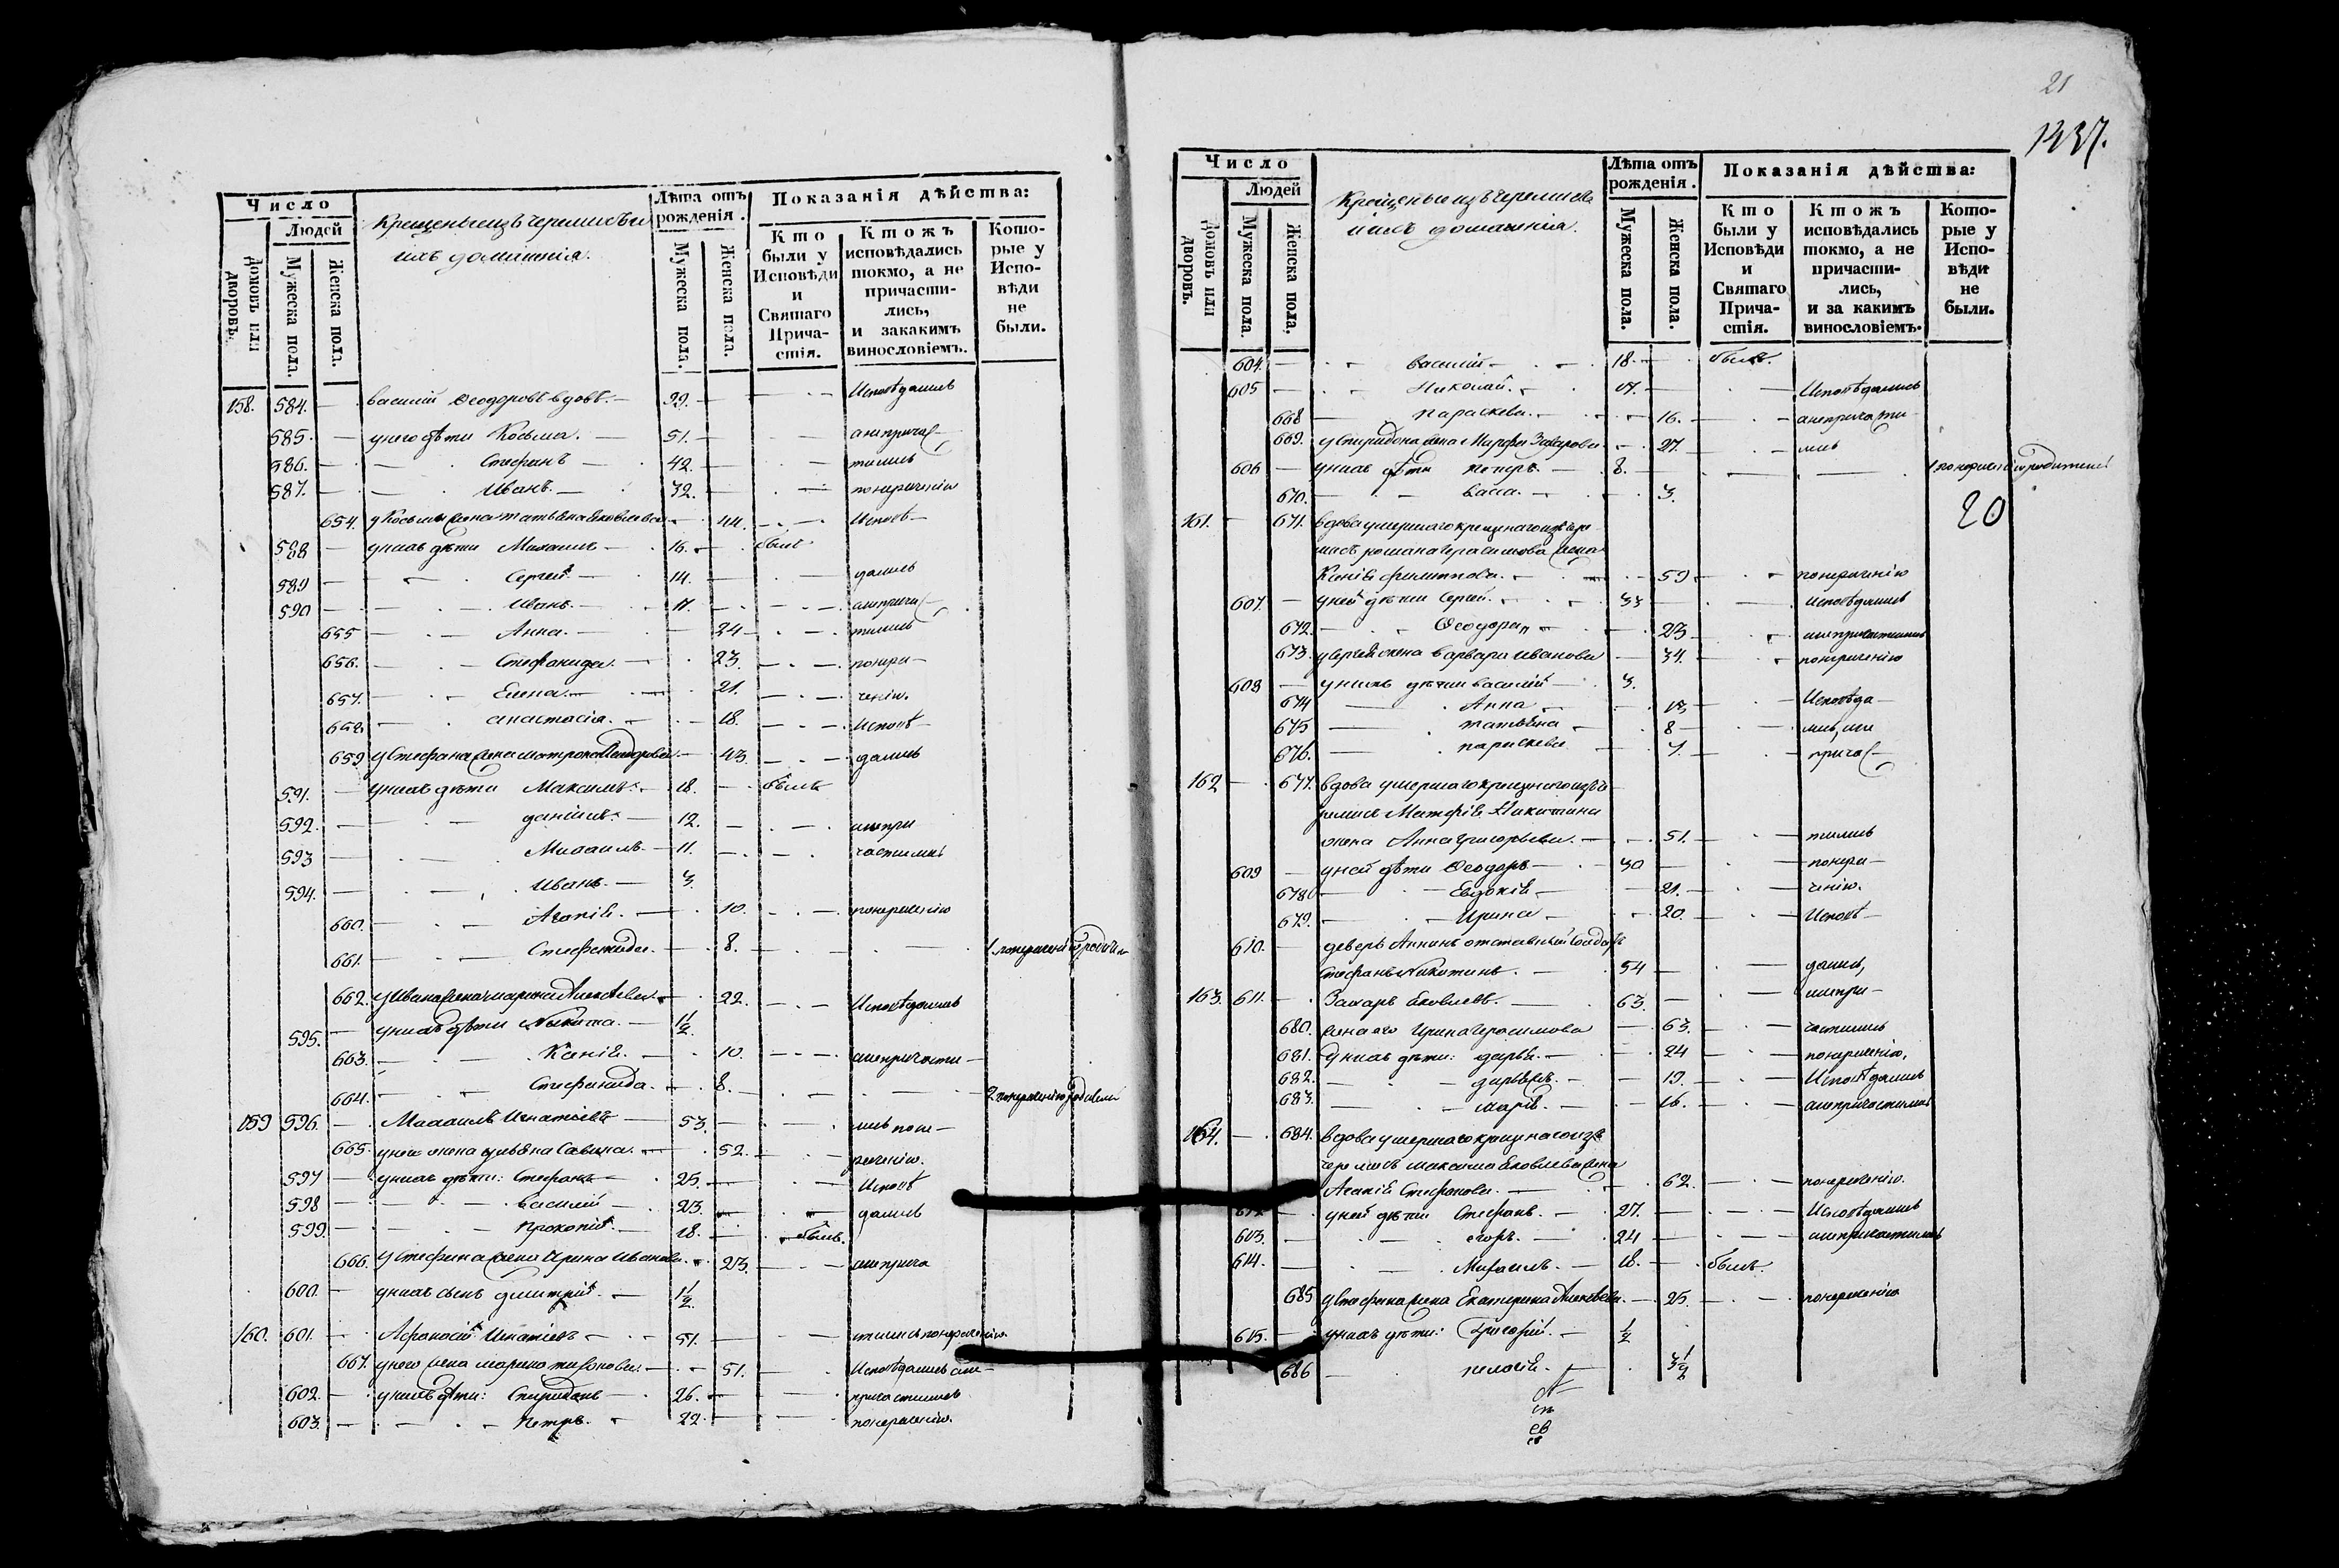 Число
Людей
Домовъ или дворовъ.
Мужеска пола.
Женска пола.
Крещеные изъ черемисъ и
ихъ домашнія.
Лѣта отъ рожденія.
Мужеска пола.
Женска пола.
Показанія дѣйства:
Кто были у Исповѣди и Святаго Причастія.
Ктожъ исповѣдались токмо, а не причастились, и закакимъ винословіемъ.
Которые у Исповѣди не были.
158. 584. василій Ѳеодоровъ вдовъ. Исповѣдались
585. у него дѣти Косьма. 51. а не причас
586. Стефанъ 42. тились
587. Иванъ. 32. по нерачению
654. у Косьмы жена татьяна Яковлева 44. Исповѣ
588 у нихъ дѣти Михаилъ 16. былъ
589 Сергей 14. дались
590 Иванъ. 11. а не прича
655 Анна. 24 тились
656. Стефанида. 23. по нера
657. Елена. 21. ченію.
658 анастасія. 18. Исповѣ
659 у Стефана жена матрона 43. дались
591. у нихъ дѣти Максимъ. 18. былъ
592. даніилъ. 12. а не при
593 Михаилъ. 11. частились
594. Иванъ. 3.
660. Агапія. 10. по нерачению
661. Стефанида. 8.
662. у Ивана жена марина Алексѣева 22. Исповѣдались
595. у нихъ дѣти Никита. 1½.
663. Ксенія. 10. а не причасти
664. Стефанида. 8.
159 596. Михаилъ Игнатіевъ 53. лись по не
665. у него жена ульяна Савина. 52. рачению.
597 у нихъ дѣти: Стефанъ 25. Исповѣ
598 василій 23. дались
599. Прокопій. 18. былъ.
666. у Стефана жена Ирина Иванова. 23. а не прича
600. у нихъ сынъ димитрій. 1½.
160. 601. Афанасій Игнатіевъ 51. тились по нерачению.
667. у него жена марина тихонова. 51. Исповѣдались а не
602. у нихъ дѣти: Спиридонъ 26. причастились
603. Петръ. 22. по нерачению.
21
1337.
Число
Людей
Домовъ или дворовъ.
Мужеска пола.
Женска пола.
Крещеные изъ черемисъ
и ихъ домашнія.
Лѣта отъ рожденія.
Мужеска пола.
Женска пола.
Показанія дѣйства:
Кто были у Исповѣди и Святаго Причастія.
Ктожъ исповѣдались токмо, а не причастились, и за какимъ винословіемъ.
Которые у Исповѣди не были.
604. василій 18. былъ.
605 Николай. 17. Исповѣдались
668 параскева. 16. а не причасти
669. у Спиридона жена Марфа Захарова 27. лись
606 у нихъ дѣти петръ. 8.
670. васса. 3.
20
161. 671. вдова умершаго крещенаго изъ че
мисъ романа Герасимова жена
Ксенія филиппова. 59 по нерачению
607. у ней дѣти Сергей. 33 Исповѣдались
672. Ѳеодора 23 а не причастились
673. у Сергея жена варвара Иванова 34. по нерачению
608 у нихъ дѣти василій 3.
674 Анна 13 Исповѣда
675 татьяна 8 лись, а не
676. параскева 7. причас
162 677. вдова умершаго крещенаго изъ че
ремисъ Матфія Никитина
жена Анна григорьева. 51. тились
609 у ней дѣти Ѳеодоръ 30 по нера
678 Евдокія 21. ченію.
679. Ирина 20. Исповѣ
610. деверь Аннинъ отставный Солдатъ
Стефанъ Никитинъ. 54 дались,
163. 611. Захаръ Яковлевъ. 63. а не при
680. жена его Ирина Герасимова 63. частились
681. у нихъ дѣти: дарья. 24 по нерачению,
682. 19. Исповѣдались
683. марія. 16. а не причастились
164. 684. вдова умершаго крещенаго изъ
черемисъ максима Яковлева жена
Агапія Стефанова. 62. по нерачению.
612 у ней дѣти Стефанъ. 27. Исповѣдались
613. егоръ. 24 а не причастились
614. Михаилъ. 18. былъ.
685 у Стефана жена Екатерина Алексѣева. 25. по нерачению
615. у нихъ дѣти: Григорій. ½
686 пелагія. 3½